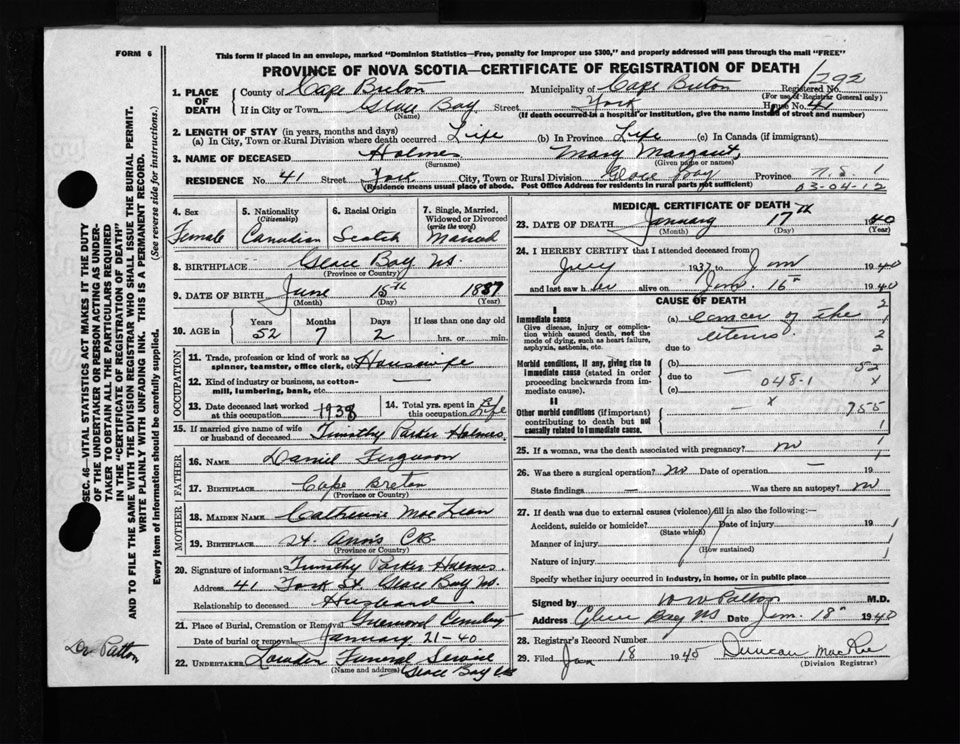 FORM 6
This form if placed in an envelope, marked "Dominion Statistics—Free, penalty for improper use $300," and properly addressed will pass through the mail "FREE"
PROVINCE OF NOVA SCOTIA—CERTIFICATE OF REGISTRATION OF DEATH
1. PLACE OF DEATH
County of Cape Breton Municipality of Cape Breton Registered No. 1292
(For use of Registrar General only)
If in City or Town Glace Bay Street York House No. 41
(Name) (If death occurred in a hospital or institution, give the name instead of street and number)
2. LENGTH OF STAY (in years, months and days)
(a) In City, Town or Rural Division where death occurred Life (b) In Province Life (c) In Canada (if immigrant)
3. NAME OF DECEASED Holmes Mary Margaret,
(Surname) (Given name or names)
RESIDENCE No. 41 Street York City, Town or Rural Division Glace Bay Province N.S. 1
(Residence means usual place of abode. Post Office Address for residents in rural parts not sufficient) 03-04-12
4. Sex Female
5. Nationality (Citizenship) Canadian
6. Racial Origin Scotch
7. Single, Married, Widowed or Divorced (write the word) Married
8. BIRTHPLACE Glace Bay NS.
(Province or Country)
9. DATE OF BIRTH June 15th 1887
(Month) (Day) (Year)
10. AGE in Years Months Days If less than one day old
52 7 2 hrs. or min.
OCCUPATION
11. Trade, profession or kind of work as spinner, teamster, office clerk, etc. Housewife
12. Kind of industry or business, as cotton-mill, lumbering, bank, etc. —
13. Date deceased last worked at this occupation 1938
14. Total yrs. spent in this occupation Life
15. If married give name of wife or husband of deceased Timothy Parker Holmes.
FATHER
16. Name Daniel Ferguson
17. BIRTHPLACE Cape Breton
(Province or Country)
MOTHER
18. MAIDEN NAME Catherine MacLean
19. BIRTHPLACE St. Anns C.B.
(Province or Country)
20. Signature of informant Timothy Parker Holmes.
Address 41 York St. Glace Bay NS.
Relationship to deceased Husband
21. Place of Burial, Cremation or Removal Greenwood Cemetery
Date of burial or removal January 21-40
22. UNDERTAKER Funeral Service
(Name and address) Glace Bay NS
MEDICAL CERTIFICATE OF DEATH
23. DATE OF DEATH January 17th 1940
(Month) (Day) (Year)
24. I HEREBY CERTIFY that I attended deceased from
July 1937 to Jan 1940
and last saw her alive on Jan. 16th 1940
CAUSE OF DEATH
I
Immediate cause
Give disease, injury or complication which caused death, not the mode of dying, such as heart failure, asphyxia, asthenia, etc.
(a) cancer of the uterus
due to
Morbid conditions, if any, giving rise to immediate cause (stated in order proceeding backwards from immediate cause).
(b)
due to —
(c) 048-1
II
Other morbid conditions (if important) contributing to death but not causally related to immediate cause.
— x
2
1
2
2
52
x
755
1
25. If a woman, was the death associated with pregnancy? no 1
26. Was there a surgical operation? No Date of operation — 19
State findings — Was there an autopsy? no
27. If death was due to external causes (violence) fill in also the following:—
Accident, suicide or homicide? Date of injury 19 1
(State which)
Manner of injury 1
(How sustained)
Nature of injury 1
Specify whether injury occurred in industry, in home, or in public place
Signed by W W Patton M.D.
Address Glace Bay NS Date Jan. 18th 1940
28. Registrar's Record Number
29. Filed Jan 18 1940 Duncan MacRae
(Division Registrar)
SEC. 46—VITAL STATISTICS ACT MAKES IT THE DUTY OF THE UNDERTAKER OR PERSON ACTING AS UNDERTAKER TO OBTAIN ALL THE PARTICULARS REQUIRED IN THE "CERTIFICATE OF REGISTRATION OF DEATH" AND TO FILE THE SAME WITH THE DIVISION REGISTRAR WHO SHALL ISSUE THE BURIAL PERMIT.
WRITE PLAINLY WITH UNFADING INK. THIS IS A PERMANENT RECORD.
Every item of information should be carefully supplied. (See reverse side for instructions.)
Dr Patton